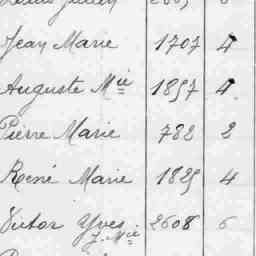 Jean Marie 1707 4
Auguste Mie 1857 4
Pierre Marie 782 2
René Marie 1825 4
Victor Yves 2608 6
J. Mie